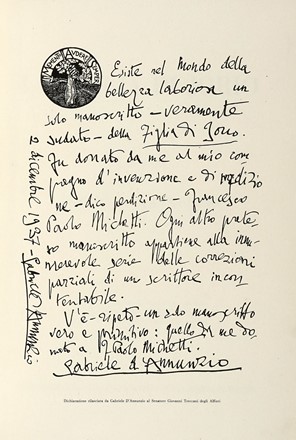 MEMENTO AVDERE SEMPER
Esiste nel Mondo della
bellezza laboriosa un
solo manoscritto – veramente
sudato – della Figlia di Iorio.
Fu donato da me al mio com
pagno d'invenzione e di
– dico perdizione – Francesco
Paolo Michetti. Ogni altro prete-
so manoscritto appartiene alla innu
merevole serie delle correzioni
parziali di un scrittore incon
tentabile.
V'è – ripeto – un solo manoscritto
vero e primitivo: quello da me do
nato a F. Paolo Michetti.
Gabriele d'Annunzio
2 dicembre 1937 – Gabriele d'Annunzio
Dichiarazione rilasciata da Gabriele D'Annunzio al Senatore Giovanni Treccani degli Alfieri